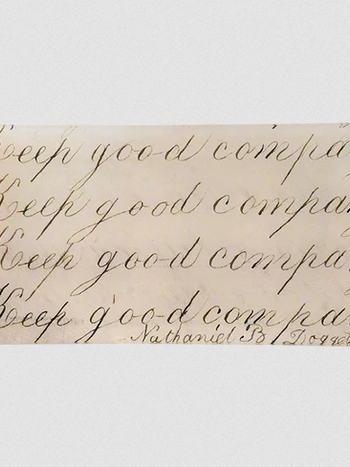 Keep good compa
Keep good compa
Keep good compa
Keep good compa
Nathaniel B Dogget